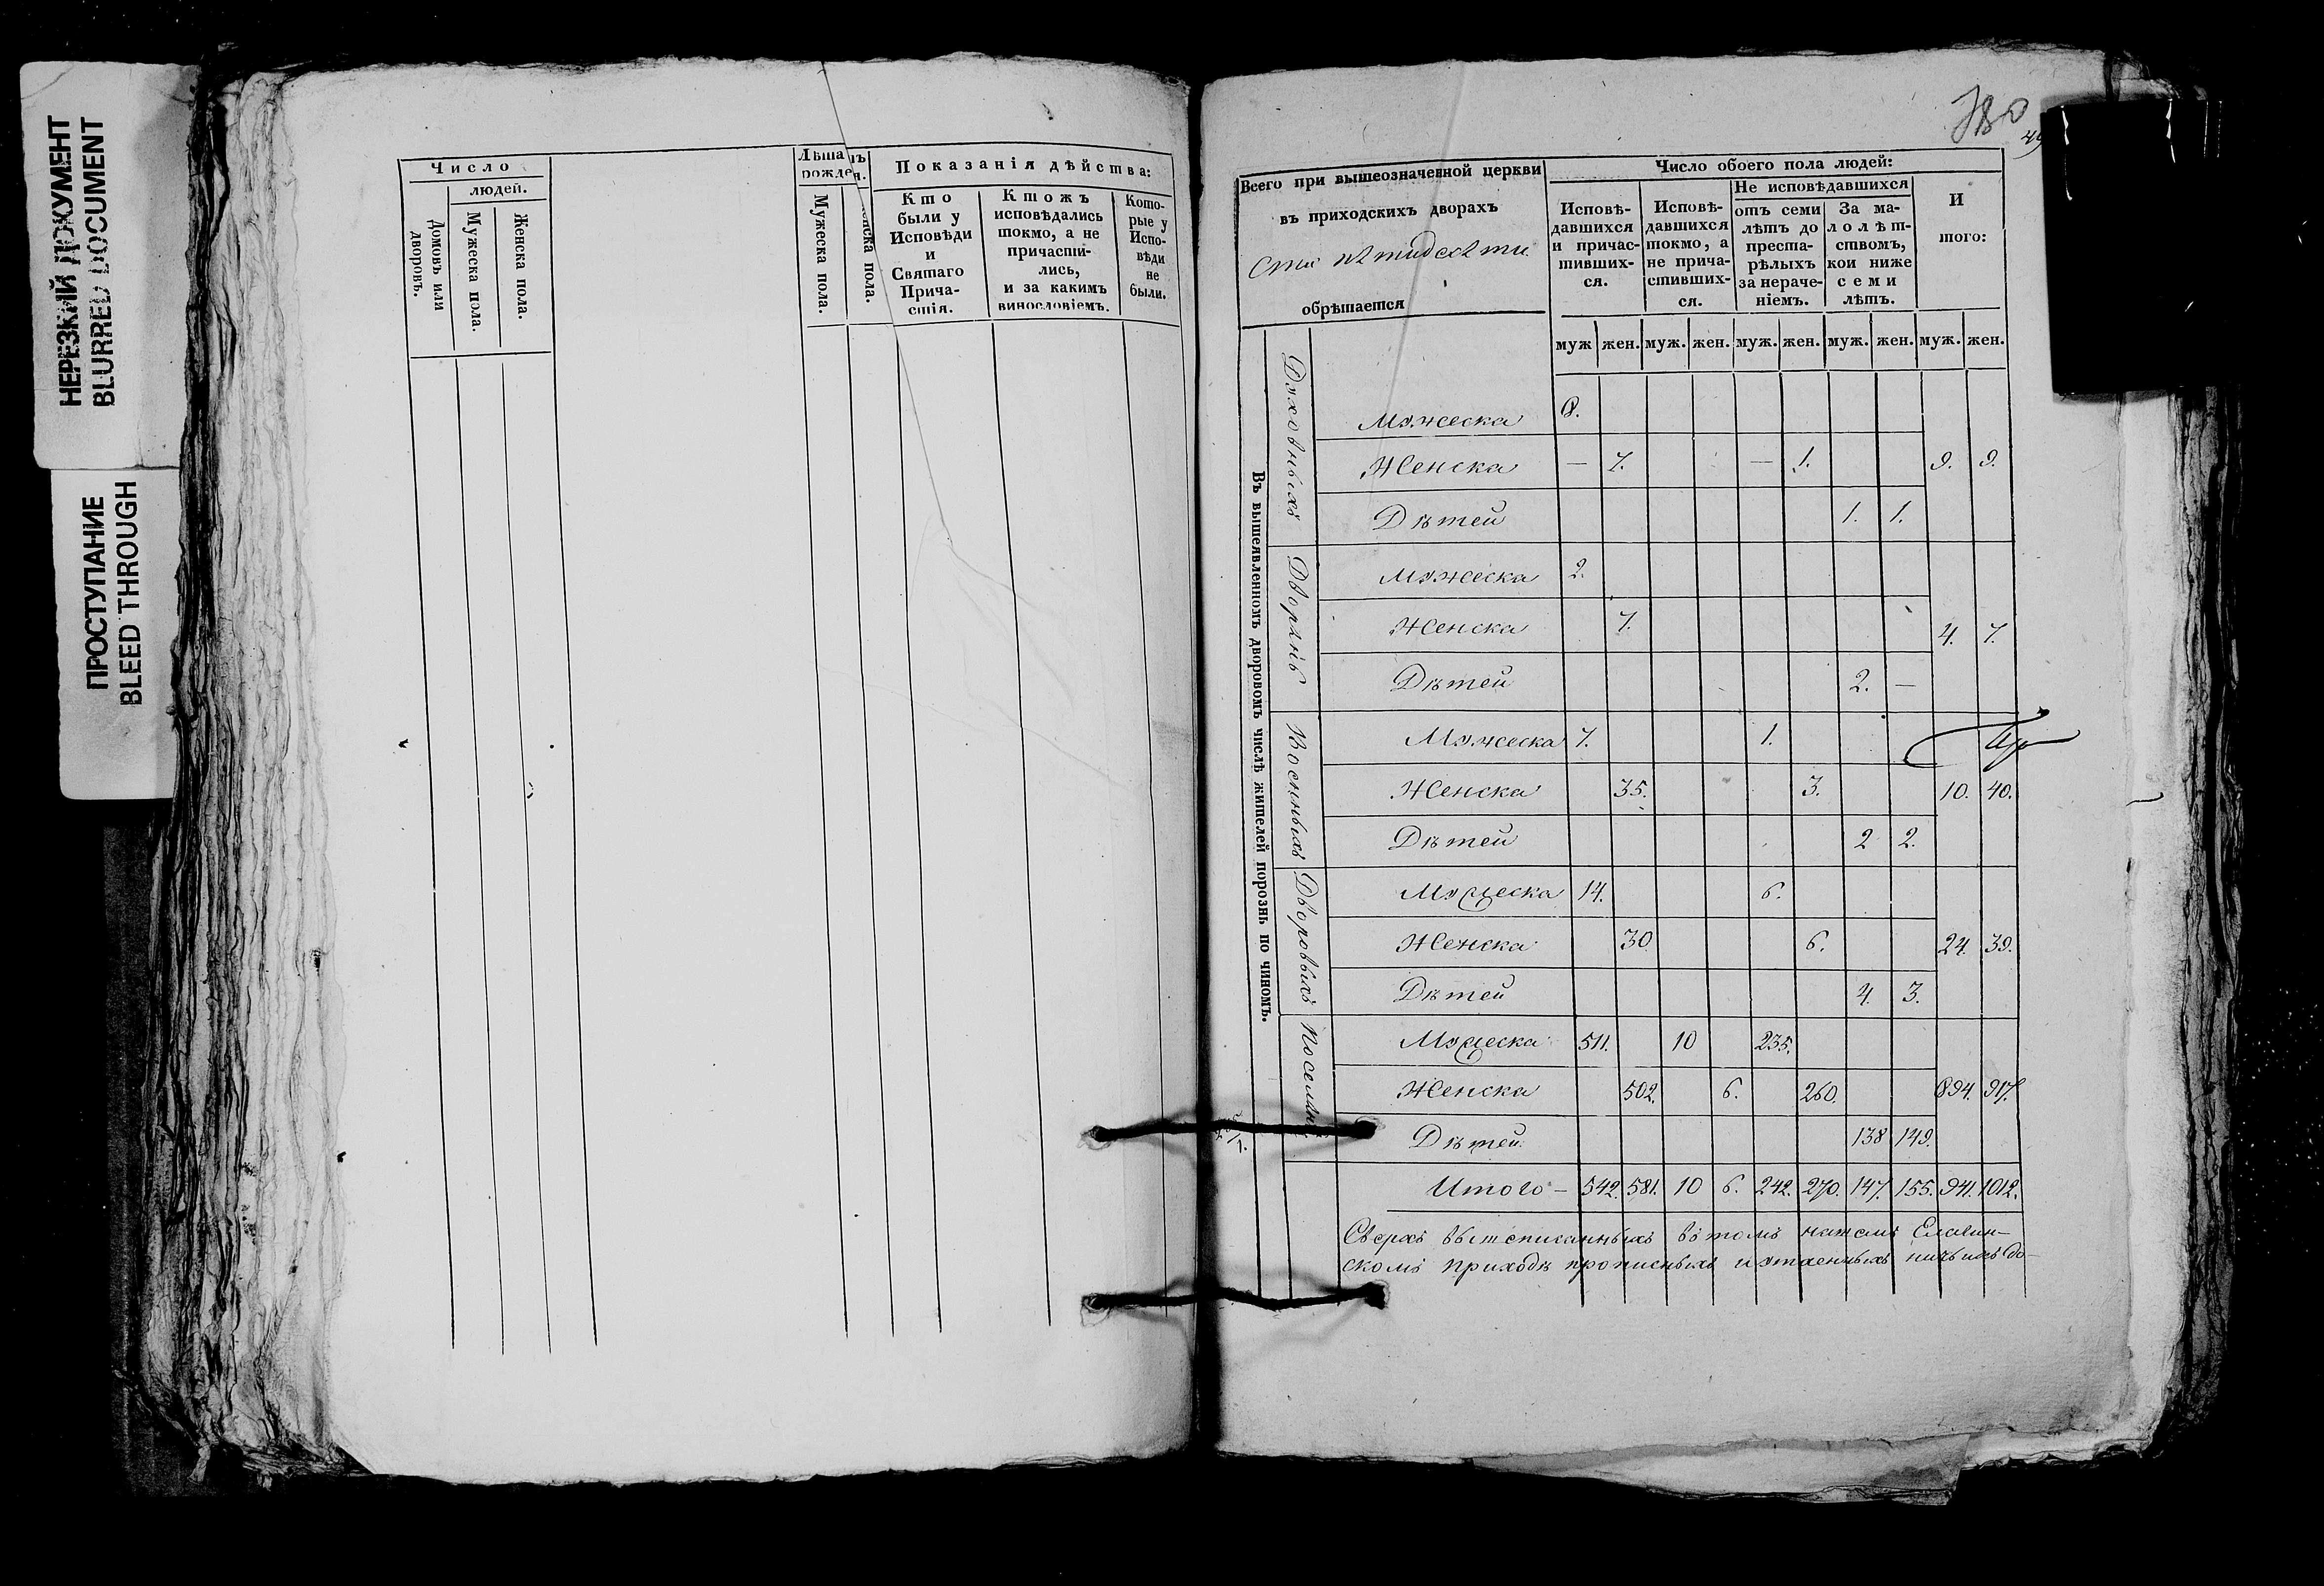 НЕРЕЗКИЙ ДОКУМЕНТ
BLURRED DOCUMENT
ПРОСТУПАНИЕ
BLEED THROUGH
Число
людей.
Домовъ или дворовъ.
Мужеска пола.
Женска пола.
Лѣта
рожде
Мужеска пола.
Показанія дѣйства:
Кто
были у
Исповѣди
и
Святаго
Прича-
стія.
Ктожъ
исповѣдались
токмо, а не
причасти-
лись,
и за какимъ
винословіемъ.
Кото-
рые у
Испо-
вѣди
не
были.
Всего при вышеозначенной церкви
въ приходскихъ дворахъ
обрѣтается
Число обоего пола людей:
Исповѣ-
давшихся
и причас-
тивших-
ся.
Исповѣ-
давшихся
токмо, а
не прича-
стивших-
ся.
Не исповѣдавшихся
отъ семи
лѣтъ до
преста-
рѣлыхъ
за нераче-
ніемъ.
За ма-
лолѣт-
ствомъ,
кои ниже
семи
лѣтъ.
И
того:
муж жен. муж. жен. муж. жен. муж. жен. муж. жен.
Въ вышеявленномъ дворовомъ числѣ жителей порознь по чиномъ.
Духовныхъ
Мужеска 8.
Женска — 7. — 1. 9. 9.
Дѣтей 1. 1.
Дворянъ
Мужеска 2.
Женска 7. 4. 7.
Дѣтей 2. —
Военныхъ
Мужеска 7. 1.
Женска 35. 3. 10. 40.
Дѣтей 2 2.
Дворовыхъ
Мужеска 14. 6.
Женска 30. 6. 24. 39.
Дѣтей 4. 3.
Поселянъ
Мужеска 511. 10 235.
Женска 502. 6. 260. 894. 917.
Дѣтей 138 149.
Итого — 542. 581. 10 6. 242. 270. 147. 155. 941. 1012.
Сверхъ вышеписанныхъ въ томъ
скомъ приходѣ прописныхъ и утаенныхъ